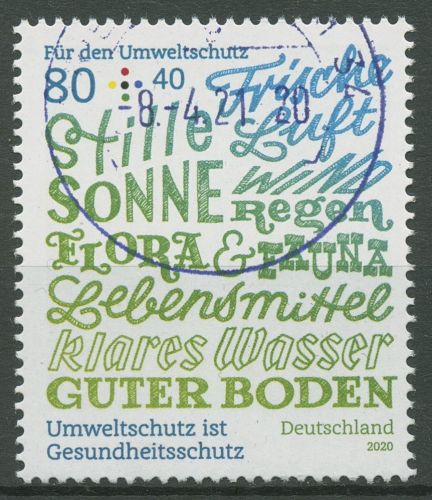 Für den Umweltschutz
80 40
-8.-4.21 20
Frische
Stille Luft
SONNE WIND
Regen
FLORA & FAUNA
Lebensmittel
klares Wasser
GUTER BODEN
Umweltschutz ist
Gesundheitsschutz
Deutschland
2020